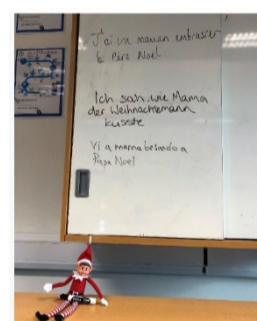 J'ai vu maman embrasser
le Père Noel
Ich sah, wie Mama
der Weihnachtsmann
küsste
Vi a mama besando a
Papa Noel